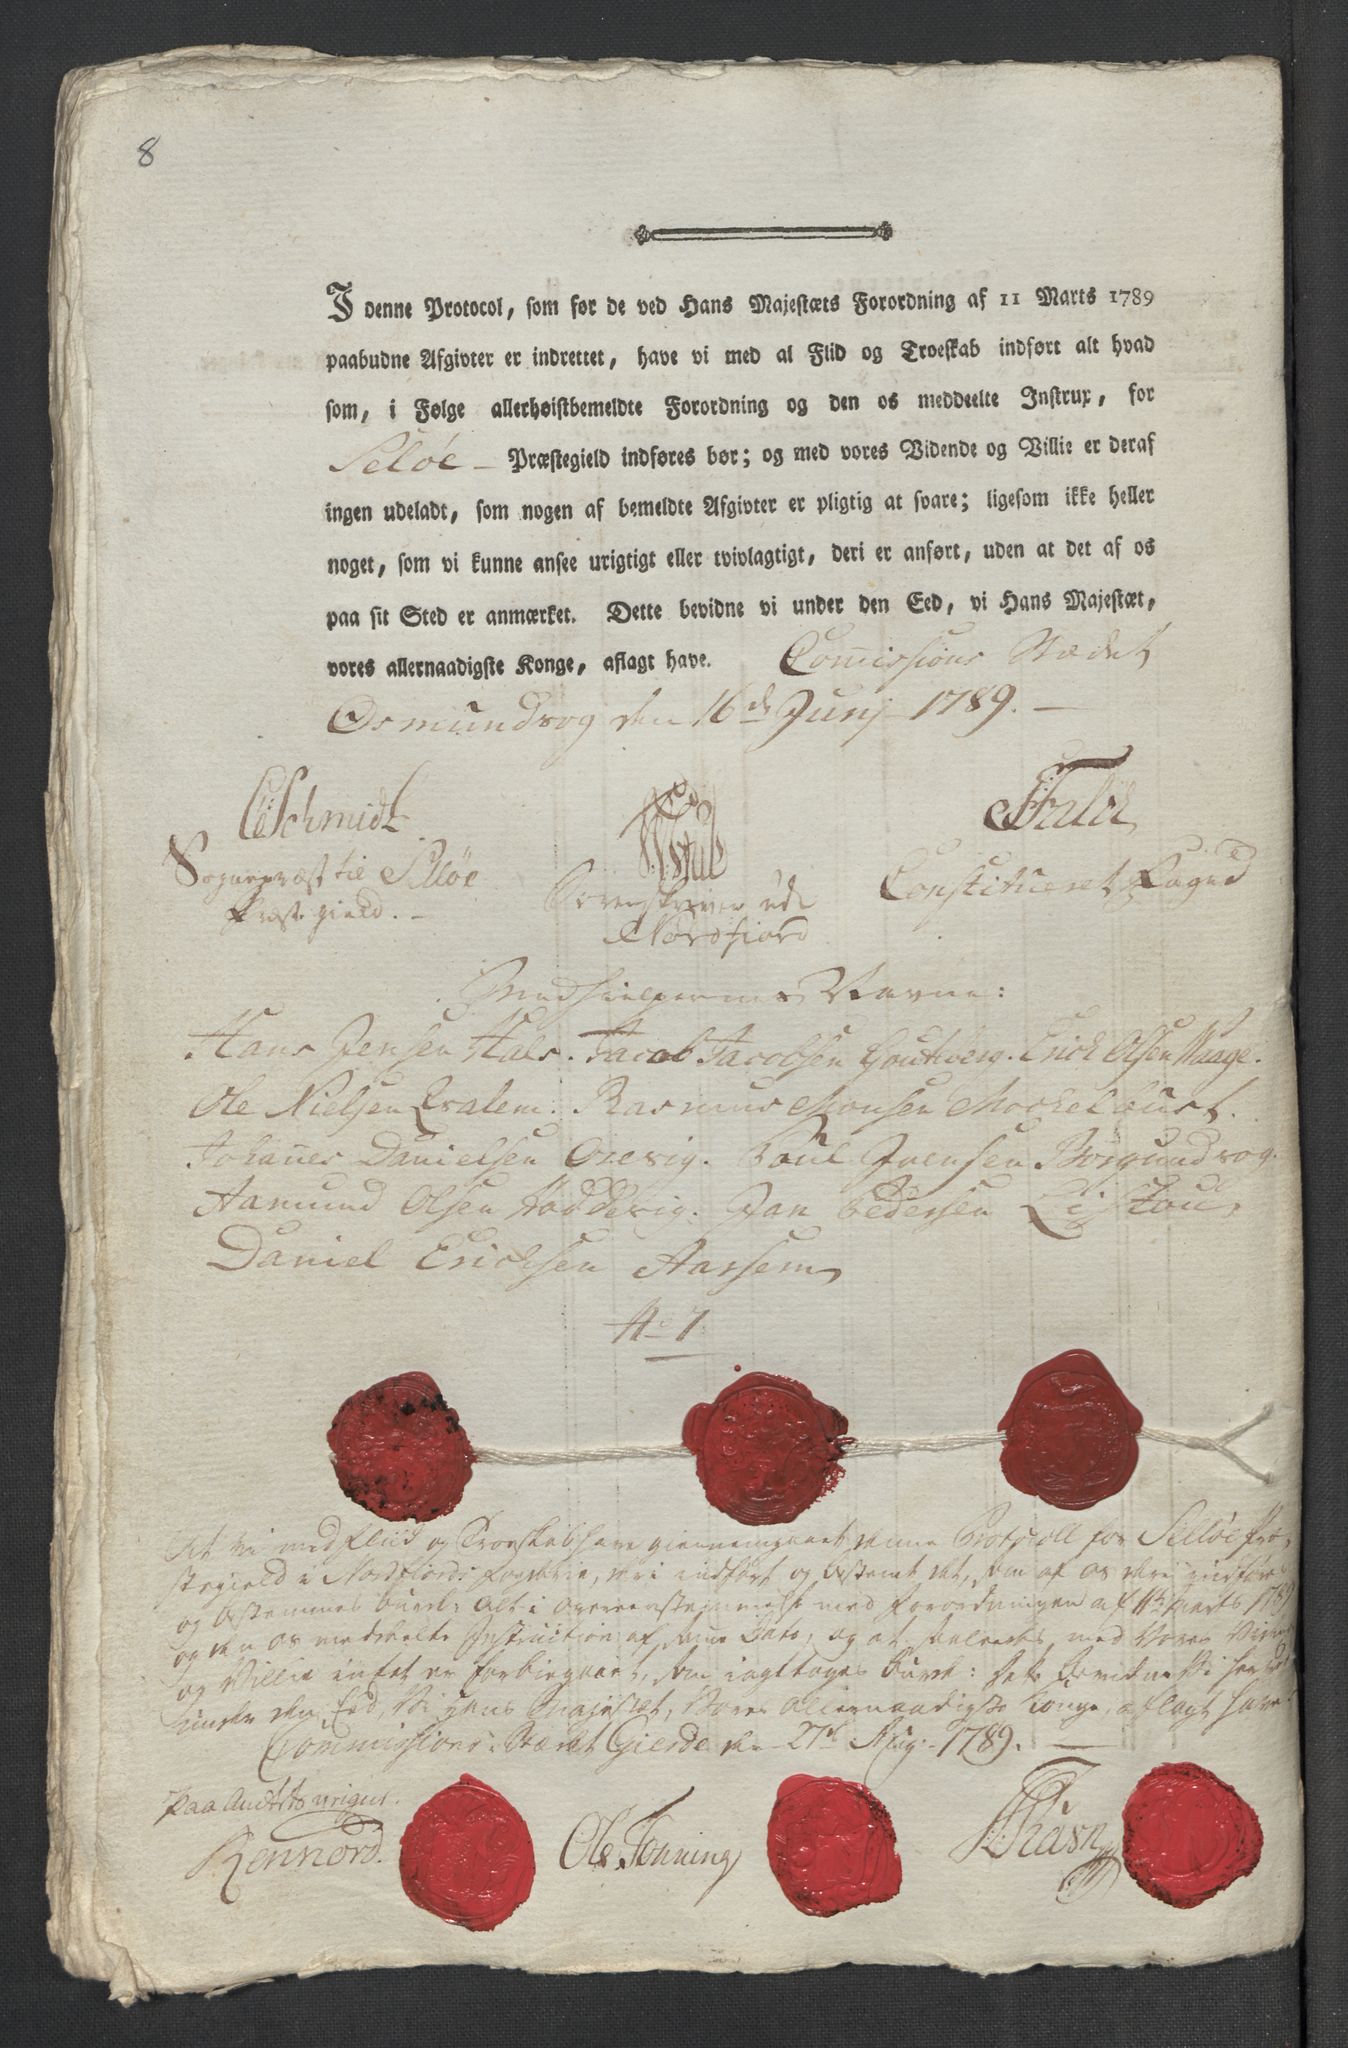 8
I denne Protocol, som før de ved Hans Majestæts Forordning af 11 Marts 1789
paabudne Afgivter er indrettet, have vi med al Flid og Troeskab indført alt hvad
som, i Følge allerhøistbemeldte Forordning og den os meddeelte Instrux, for
Seløe - Præstegield indføres bør; og med vores Vidende og Villie er deraf
ingen udeladt, som nogen af bemeldte Afgivter er pligtig at svare; ligesom ikke heller
noget, som vi kunne ansee urigtigt eller tvivlagtigt, deri er anført, uden at det af os
paa sit Sted er anmærket. Dette bevidne vi under den Eed, vi Hans Majestæt,
vores allernaadigste Konge, aflagt have. Comissions Stædet
Osmundvog den 16de Junj 1789.
Schmidt
Sognepræst til Selløe
Præstegield. -
Sorenskriver udi
Nordfiord
Constitueret Foged
Medhielpernes Navne:
Hans Jensen Hals. Jacob Jacobsen Goutvog. Erick Olsen Waage.
Ole Nielsen Qvalem. Rasmus Monsen Mockelbust.
Johannes Danielsen Orevig. Poul Joensen Borgundvog.
Aamund Olsen Haddevig. Jan Pedersen Listoul
Daniel Ericksen Aarsem
At vi med Fliid og Troeskab have giennemgaaet denne Protocoll for Selløe Præ-
stegield i Nordfiords Fogderie, deri indført og bestemt det, som af os deri indføres
og bestemmes burde, alt i overeensstemmelse med Forordningen af 11te Marts 1789
og den os meddeelte Instruction af samme Dato, og at saaledes med Vores Vidende
og Villie intet er forbiegaaet, som iagttages burde: Dette bevidne Vi herved
under den Eed, Vi Hans Majestæt, Vores Allernaadigste Konge, aflagt have.
Commissions-Stædet Gierde den 27de Aug: 1789. -
Paa Amtets vegne.
Rennord.
Ole Tonning